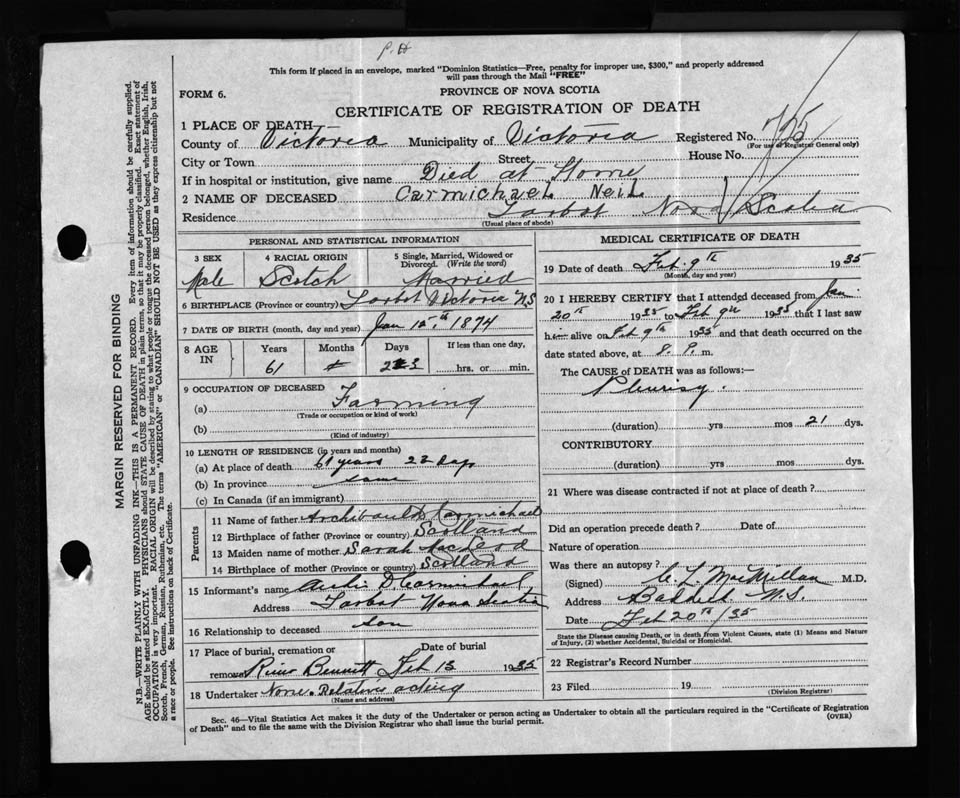 P. H
This form if placed in an envelope, marked "Dominion Statistics—Free, penalty for improper use, $300," and properly addressed
will pass through the Mail "FREE"
FORM 6.
PROVINCE OF NOVA SCOTIA
CERTIFICATE OF REGISTRATION OF DEATH
1 PLACE OF DEATH—
County of Victoria Municipality of Victoria Registered No.
(For use of Registrar General only)
City or Town Street House No.
If in hospital or institution, give name Died at Home
2 NAME OF DECEASED Carmichael Neil
Residence Tarbot Nova Scotia
(Usual place of abode)
PERSONAL AND STATISTICAL INFORMATION
3 SEX 4 RACIAL ORIGIN 5 Single, Married, Widowed or Divorced. (Write the word)
Male Scotch Married
6 BIRTHPLACE (Province or country) Tarbot Victoria N.S
7 DATE OF BIRTH (month, day and year) Jan 1874
8 AGE IN Years Months Days If less than one day,
61 hrs. or min.
9 OCCUPATION OF DECEASED
(a) Farming
(Trade or occupation or kind of work)
(b)
(Kind of industry)
10 LENGTH OF RESIDENCE (in years and months)
(a) At place of death 61 years 23 days
(b) In province same
(c) In Canada (if an immigrant)
Parents
11 Name of father Archibauld Carmichael
12 Birthplace of father (Province or country) Scotland
13 Maiden name of mother Sarah MacLeod
14 Birthplace of mother (Province or country) Scotland
15 Informant's name Archi D Carmichael
Address Tarbot Nova Scotia
16 Relationship to deceased son
17 Place of burial, cremation or removal Date of burial
River Bennett Feb 13 1935
18 Undertaker None. Relatives acting
(Name and address)
MEDICAL CERTIFICATE OF DEATH
19 Date of death Feb. 9th 1935
(Month, day and year)
20 I HEREBY CERTIFY that I attended deceased from Jan
20th 1935 to Feb 9th 1935 that I last saw
him alive on Feb 9th 1935 and that death occurred on the
date stated above, at 8. P. m.
The CAUSE of DEATH was as follows:—
Pleurisy
(duration) yrs mos 21 dys.
CONTRIBUTORY
(duration) yrs mos dys.
21 Where was disease contracted if not at place of death?
Did an operation precede death? Date of
Nature of operation
Was there an autopsy?
(Signed) C. L. MacMillan M.D.
Address Baddeck N.S.
Date Feb 20th/35
State the Disease causing Death, or in death from Violent Causes, state (1) Means and Nature
of Injury, (2) whether Accidental, Suicidal or Homicidal.
22 Registrar's Record Number
23 Filed 19
(Division Registrar)
Sec. 46—Vital Statistics Act makes it the duty of the Undertaker or person acting as Undertaker to obtain all the particulars required in the "Certificate of Registration
of Death" and to file the same with the Division Registrar who shall issue the burial permit.
(OVER)
MARGIN RESERVED FOR BINDING
N.B.—WRITE PLAINLY WITH UNFADING INK—THIS IS A PERMANENT RECORD. Every item of information should be carefully supplied.
AGE should be stated EXACTLY. PHYSICIANS should STATE CAUSE OF DEATH in plain terms, so that it may be properly classified. Exact statement of
OCCUPATION is very important. RACIAL ORIGIN will be described by stating to what people or tongue the deceased person belonged, whether English, Irish,
Scotch, French, German, Russian, Ruthenian, etc. The terms "AMERICAN" or "CANADIAN" SHOULD NOT BE USED as they express citizenship but not
a race or people. See instructions on back of Certificate.